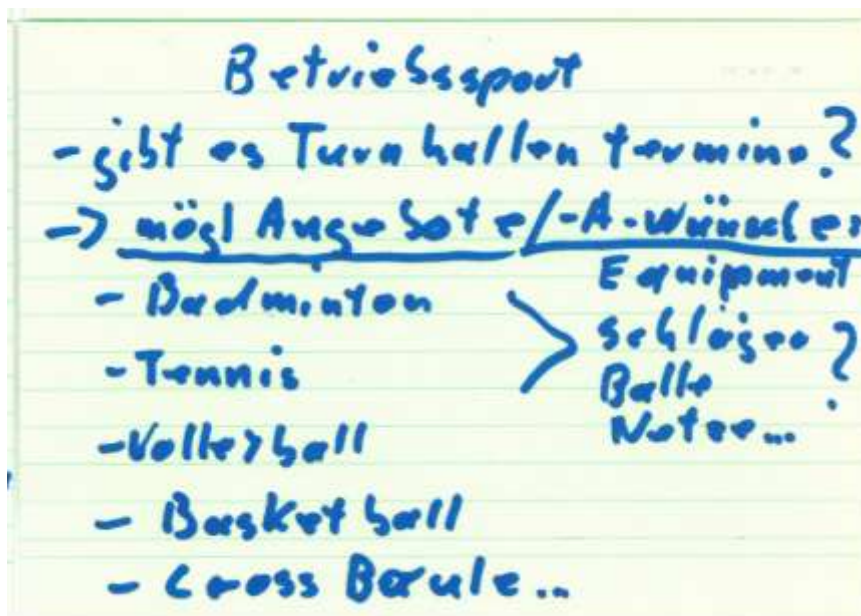 Betriebssport
- gibt es Turnhallen termine?
-> mögl Angebote/-A-Wünsche
- Badminton
- Tennis
- Volleyball
- Basketball
- Cross Boule...
Equipment
Schläger
Bälle
Netze...
?